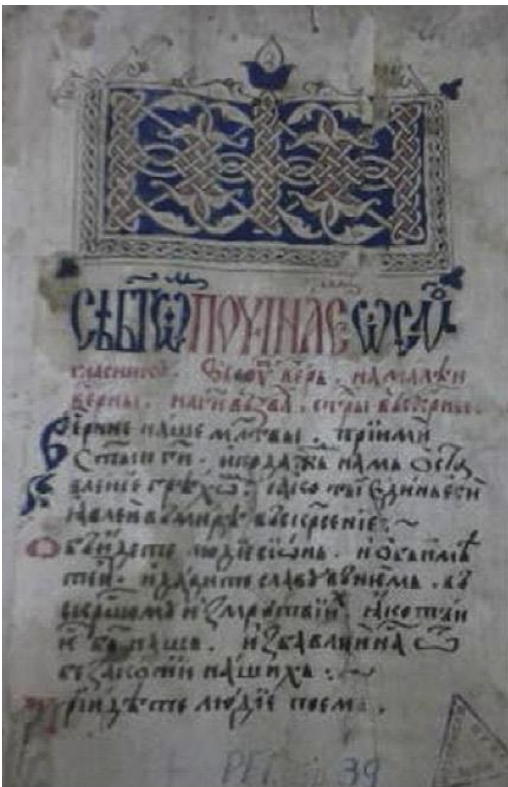 Съ бг҃ѡ почінаеⷨ ѡсмо
гласникь. Въ сѹⷠ вечерь. на малѣи
вечерны. на г҃и възва. стⷯры въскрⷭны.
Вечерние наше мл҃твы. прїими
с҃тыи г҃и. и подажⷣь намь ѡста
вленїе грѣхѡⷨ. ꙗко ты единь еси
ꙗвлеи въ мирѣ въскрⷭсенїе:~
Обыидѣте людїе сїѡнь. и обьимѣ
те и. и дадите славѹ въ нѥмь. въ
скрⷭшомѹ из мрⷮьвїиⷯ. ꙗко тъи
еⷭ б҃ъ нашь. избавлеи на ѿ
безаконїи нашихь:~
Прїидѣте людїе поемь.
РЕГ. бр. 39